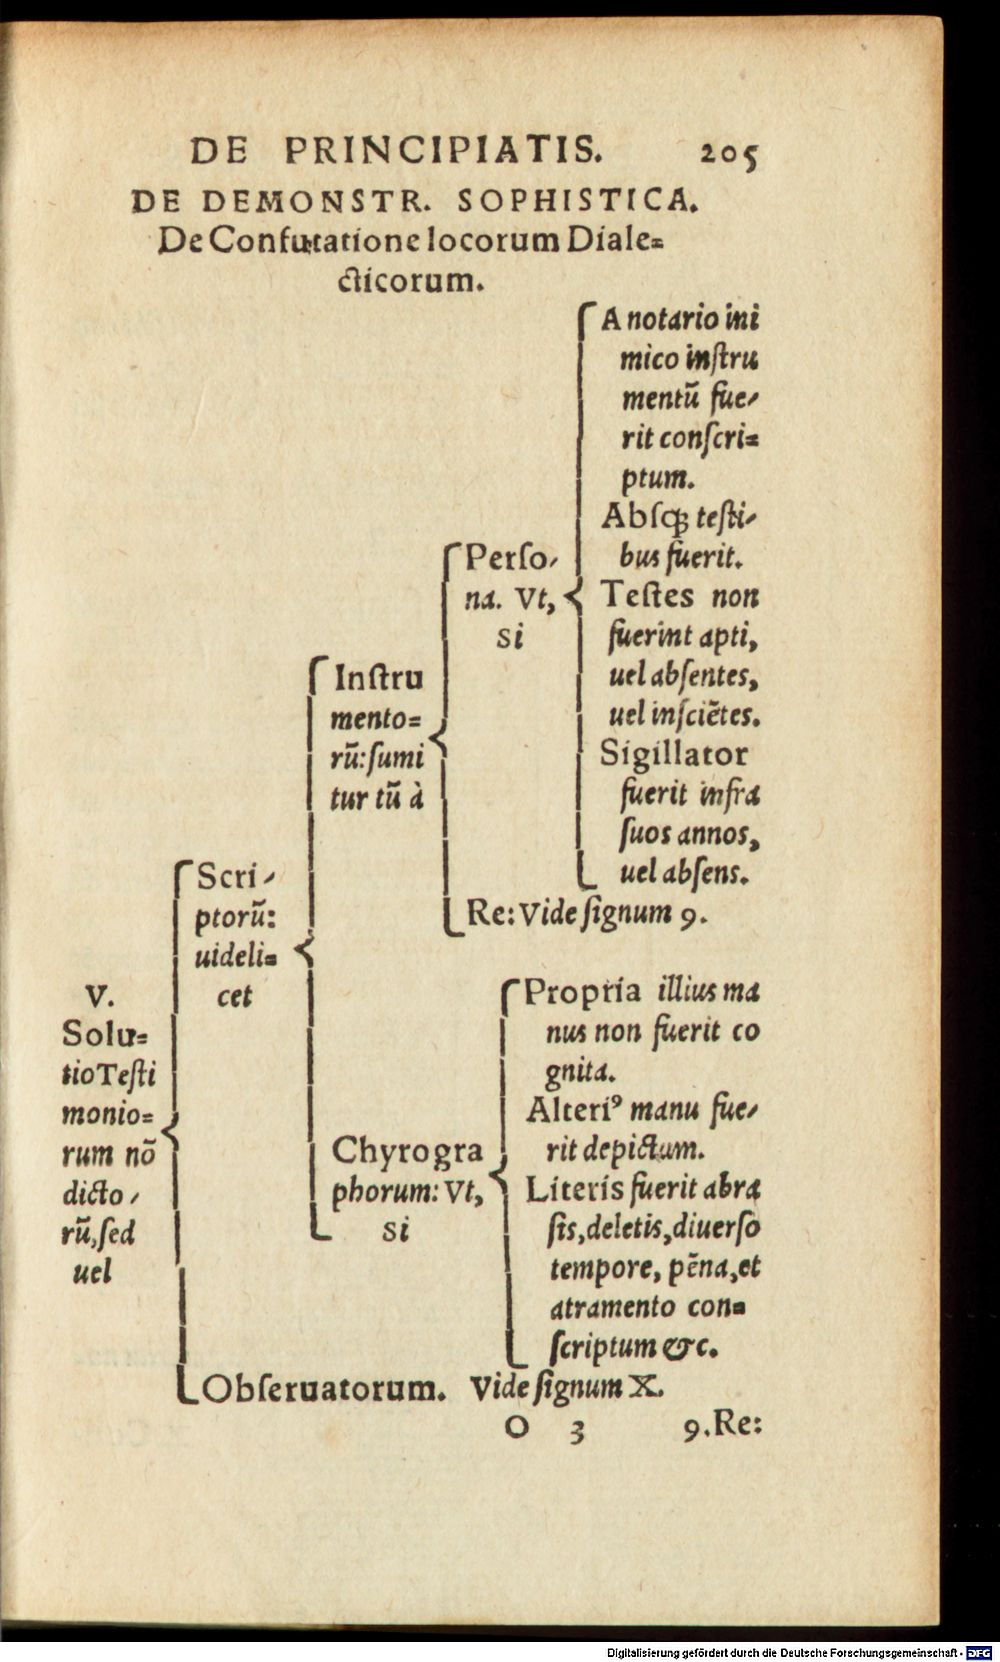 DE PRINCIPIATIS. 205
DE DEMONSTR. SOPHISTICA.
De Confutatione locorum Diale=
cticorum.
V.
Solu=
tio Testi
monio=
rum nō
dicto-
rū, sed
uel
Scri-
ptorū:
uideli=
cet
Instru
mento=
rū: sumi
tur tū à
Perso-
na. Vt,
si
A notario ini
mico instru
mentū fue-
rit conscri=
ptum.
Absqꝫ testi-
bus fuerit.
Testes non
fuerint apti,
uel absentes,
uel insciētes.
Sigillator
fuerit infra
suos annos,
uel absens.
Re: Vide signum 9.
Chyrogra
phorum: Vt,
si
Propria illius ma
nus non fuerit co
gnita.
Alteriꝰ manu fue-
rit depictum.
Literis fuerit abra
sis, deletis, diuerso
tempore, pēna, et
atramento con=
scriptum &c.
Obseruatorum. Vide signum X.
O 3 9. Re:
Digitalisierung gefördert durch die Deutsche Forschungsgemeinschaft - DFG